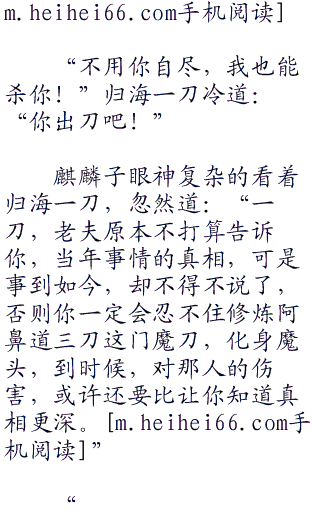 m.heihei66.com手机阅读]
“不用你自尽，我也能
杀你！”归海一刀冷道：
“你出刀吧！”
麒麟子眼神复杂的看着
归海一刀，忽然道：“一
刀，老夫原本不打算告诉
你，当年事情的真相，可是
事到如今，却不得不说了，
否则你一定会忍不住修炼阿
鼻道三刀这门魔刀，化身魔
头，到时候，对那人的伤
害，或许还要比让你知道真
相更深。[m.heihei66.com手
机阅读]”
“